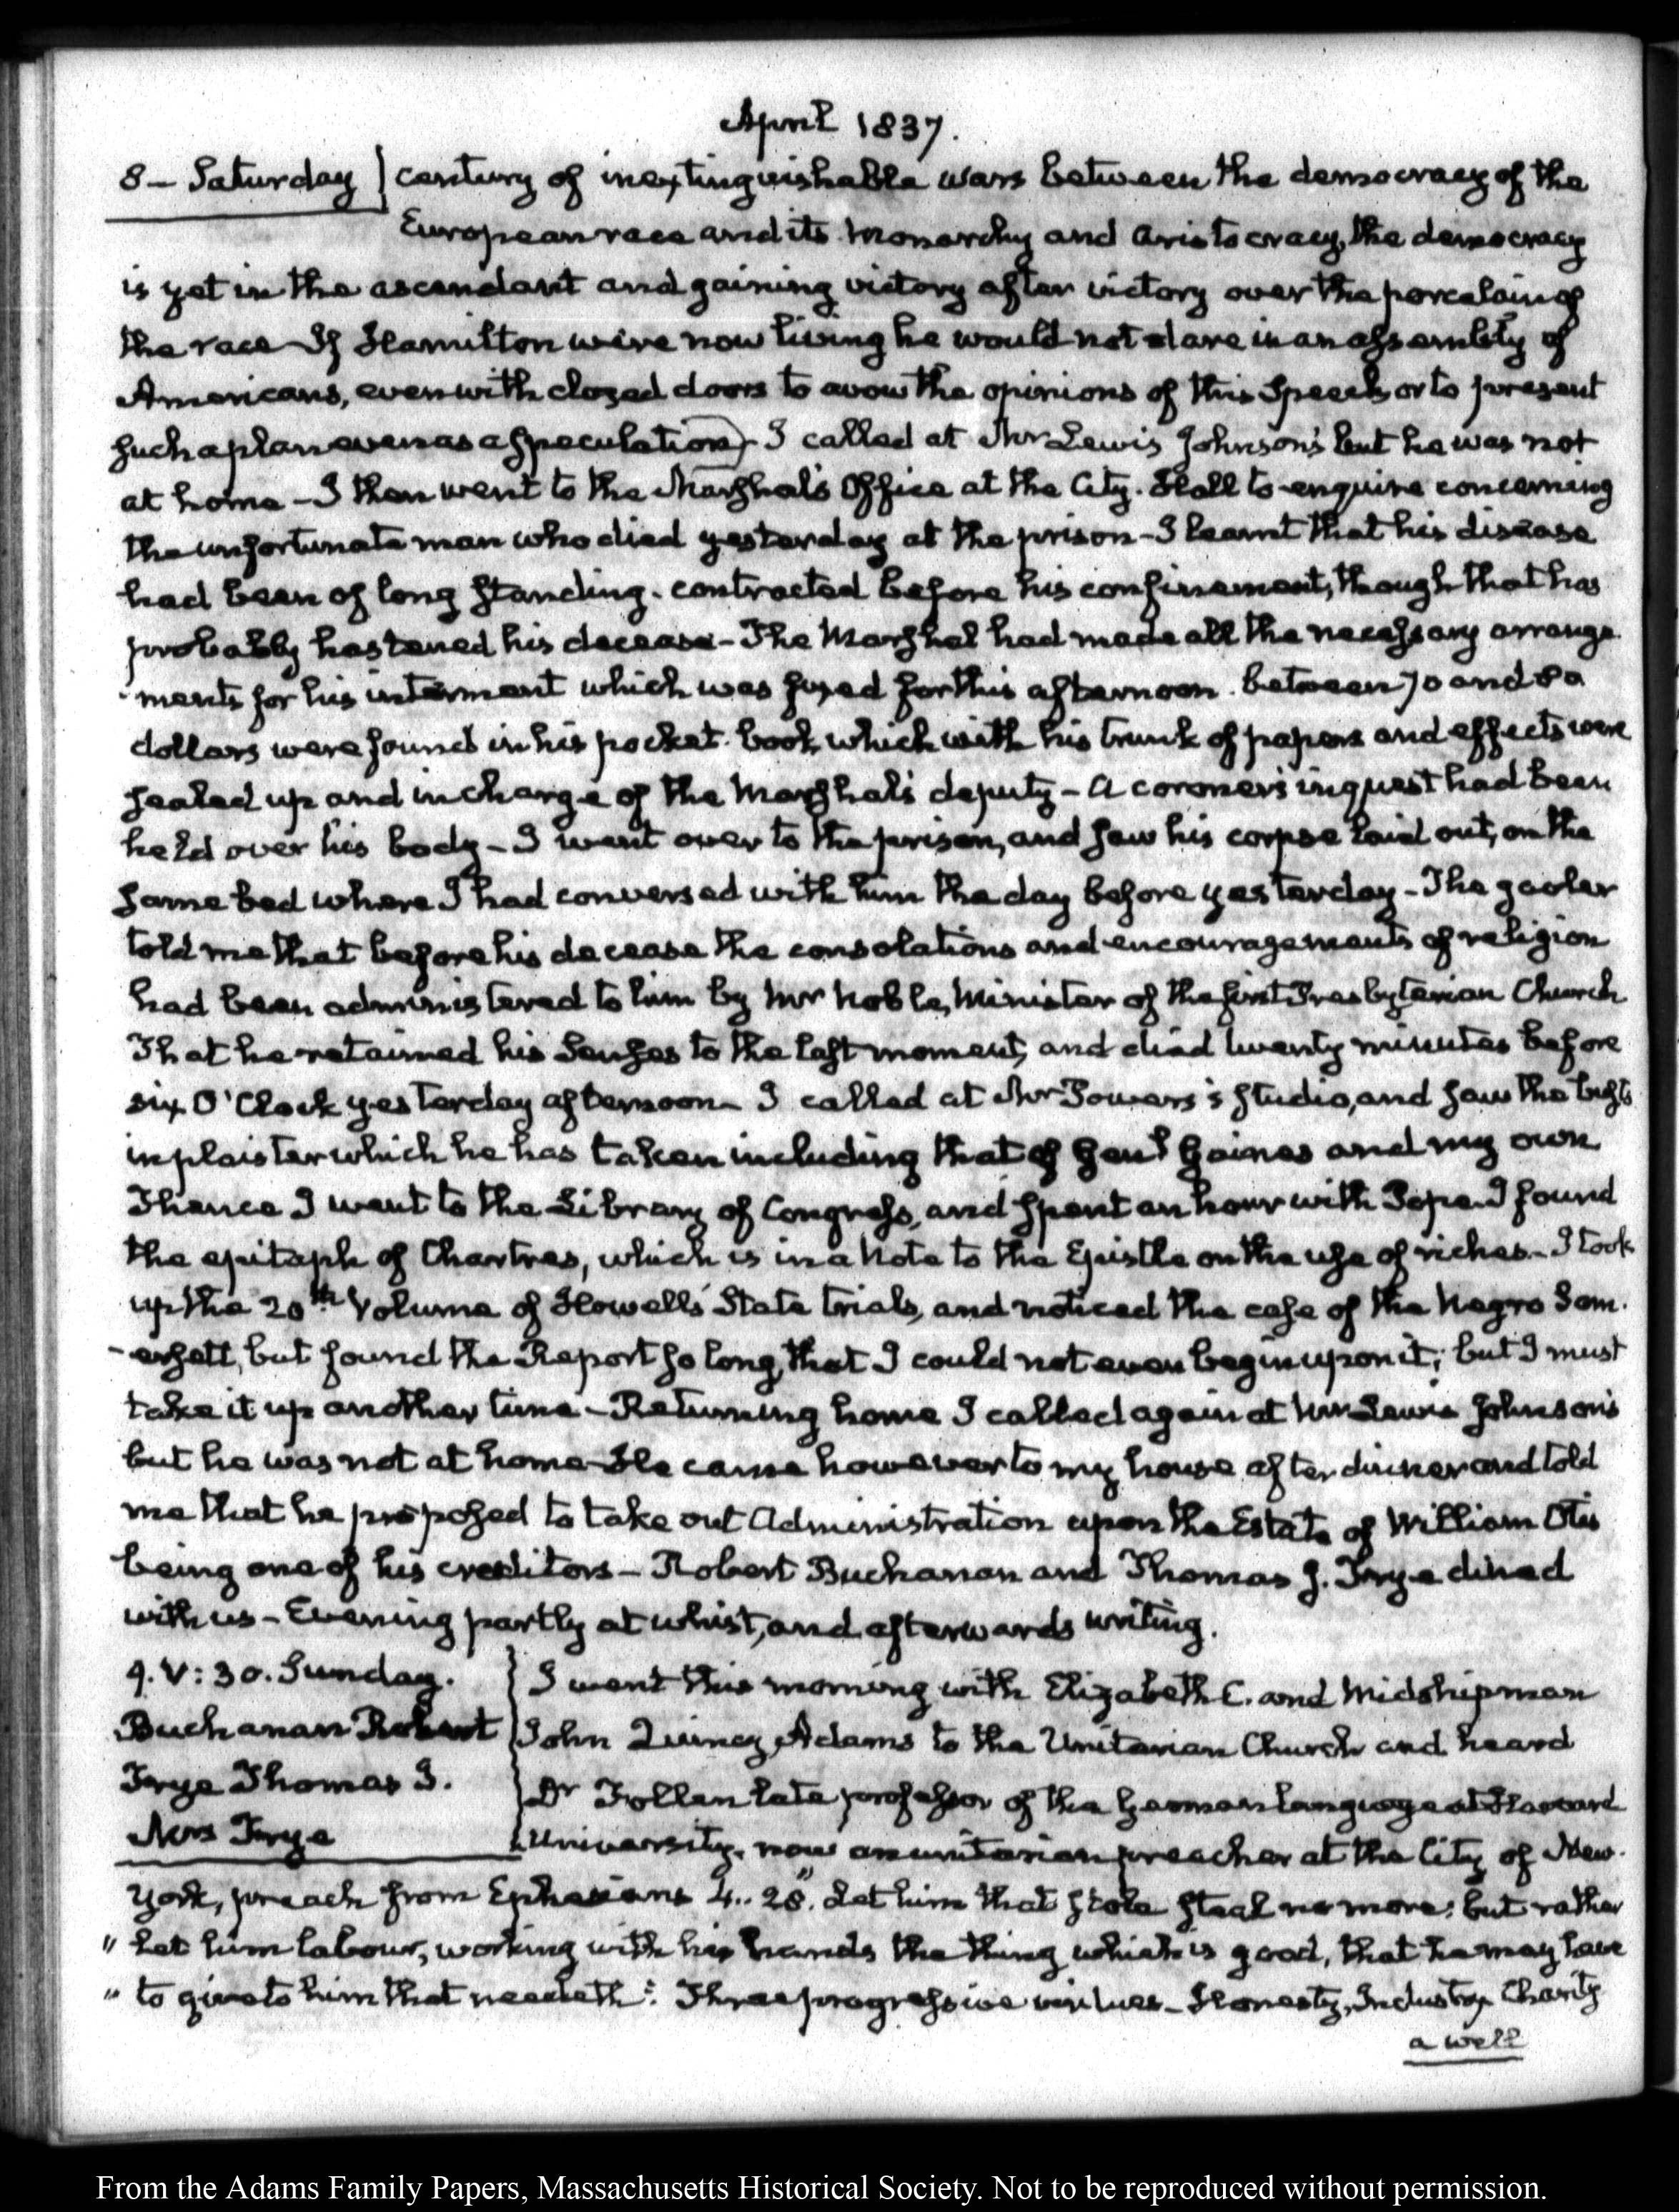 April 1837.
8 – Saturday } century of inextinguishable wars between the democracy of the
European race and its Monarchy and Aristocracy, the democracy
is yet in the ascendant and gaining victory after victory over the porcelain of
the race – If Hamilton were now living he would not dare in an assembly of
Americans, even with closed doors to avow the opinions of this Speech or to present
such a plan even as a speculation) – I called at Mr Lewis Johnson's but he was not
at home – I then went to the Marshal's Office at the City-Hall to enquire concerning
the unfortunate man who died yesterday at the prison – I learnt that his disease
had been of long standing – contracted before his confinement, though that has
probably hastened his decease – The Marshal had made all the necessary arrange-
-ments for his interment which was fixed for this afternoon. between 70 and 80
dollars were found in his pocket-book, which with his trunk of papers and effects were
sealed up and in charge of the Marshal's deputy – A coroner's inquest had been
held over his body – I went over to the prison, and saw his corpse laid out, on the
same bed where I had conversed with him the day before yesterday – The gaoler
told me that before his decease the consolations and encouragements of religion
had been administered to him by Mr Noble, Minister of the first Presbyterian Church
That he retained his senses to the last moment, and died twenty minutes before
six O'Clock yesterday afternoon – I called at Mr Powers's studio, and saw the busts
in plaister which he has taken including that of Genl Gaines and my own
Thence I went to the Library of Congress, and spent an hour with Pope. I found
the epitaph of Chartres, which is in a Note to the Epistle on the use of riches – I took
up the 20th Volume of Howell's State trials, and noticed the case of the Negro Som-
-ersett, but found the Report so long, that I could not even begin upon it; but I must
take it up another time – Returning home I called again at Mr Lewis Johnson's
but he was not at home – He came however to my house after dinner and told
me that he proposed to take out Administration upon the Estate of William Otis
being one of his creditors – Robert Buchanan and Thomas J. Frye dined
with us – Evening partly at whist, and afterwards writing.
9. V: 30. Sunday. } I went this morning with Elizabeth C. and Midshipman
Buchanan Robert } John Quincy Adams to the Unitarian Church and heard
Frye Thomas J. } Dr Follen late professor of the German language at Harvard
Mrs Frye } University, now an unitarian preacher at the City of New-
York, preach from Ephesians 4..28. "Let him that stole steal no more: but rather
" let him labour, working with his hands the thing which is good, that he may have
" to give to him that needeth": Three progressive virtues – Honesty, Industry, Charity
a well
From the Adams Family Papers, Massachusetts Historical Society. Not to be reproduced without permission.